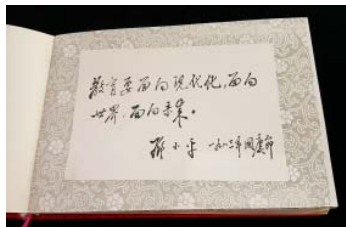 教育要面向现代化,面向
世界,面向未来。
邓小平 一九八三年国庆节